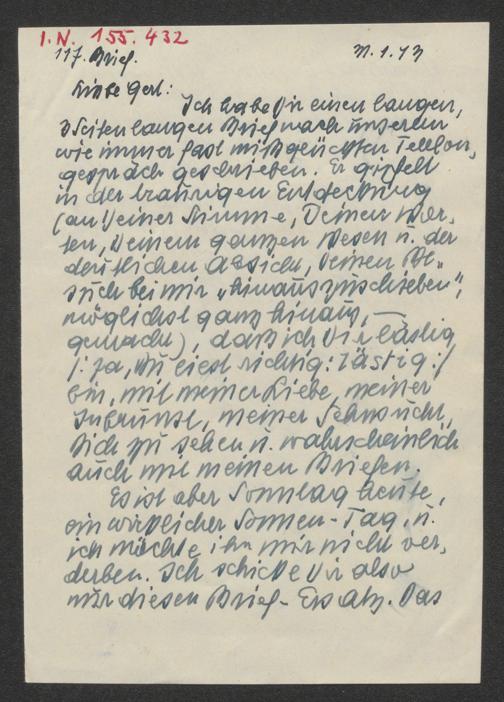 I.N. 155.432
117. Brief.
31.1.43
Liebe Gerl:
Ich habe Dir einen langen,
3 Seiten langen Brief nach unserem
wie immer fast mißglückten Telefon,
gespräch geschrieben. Er gipfelt
in der traurigen Entdeckung
(an Deiner Stimme, Deinen Wor-
ten, Deinem ganzen Wesen u. der
deutlichen Absicht, Deinen Be-
such bei mir „hinauszuschieben",
möglichst ganz hinaus, —
gemacht), daß ich Dir lästig
/: ja, Du liest richtig: lästig :/
bin, mit meiner Liebe, meiner
Inbrunst, meiner Sehnsucht,
Dich zu sehen u. wahrscheinlich
auch mit meinen Briefen.
Es ist aber Sonntag heute,
ein wirklicher Sonnen-Tag, u.
ich möchte ihn mir nicht ver-
derben. Ich schicke Dir also
nur diesen Brief-Ersatz. Das